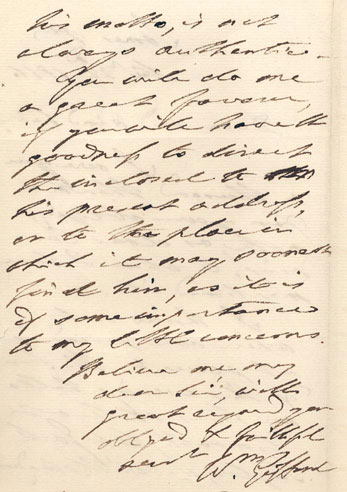 his motto, is not
always authentic —
You will do me
a great favour,
if you will have the
goodness to direct
the inclosed to
his present address,
or to the place in
which it may soonest
find him, as it is
of some importance
to my little concerns.
Believe me my
dear Sir, with
great regard, your
obliged & faithful
servt
Wm Gifford